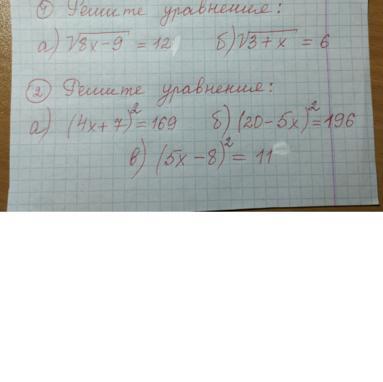 ① Решите уравнения:
а) √8x-9 = 12 б) √3+x = 6
② Решите уравнения:
а) (4x+7)² = 169 б) (20-5x)² = 196
в) (5x-8)² = 11